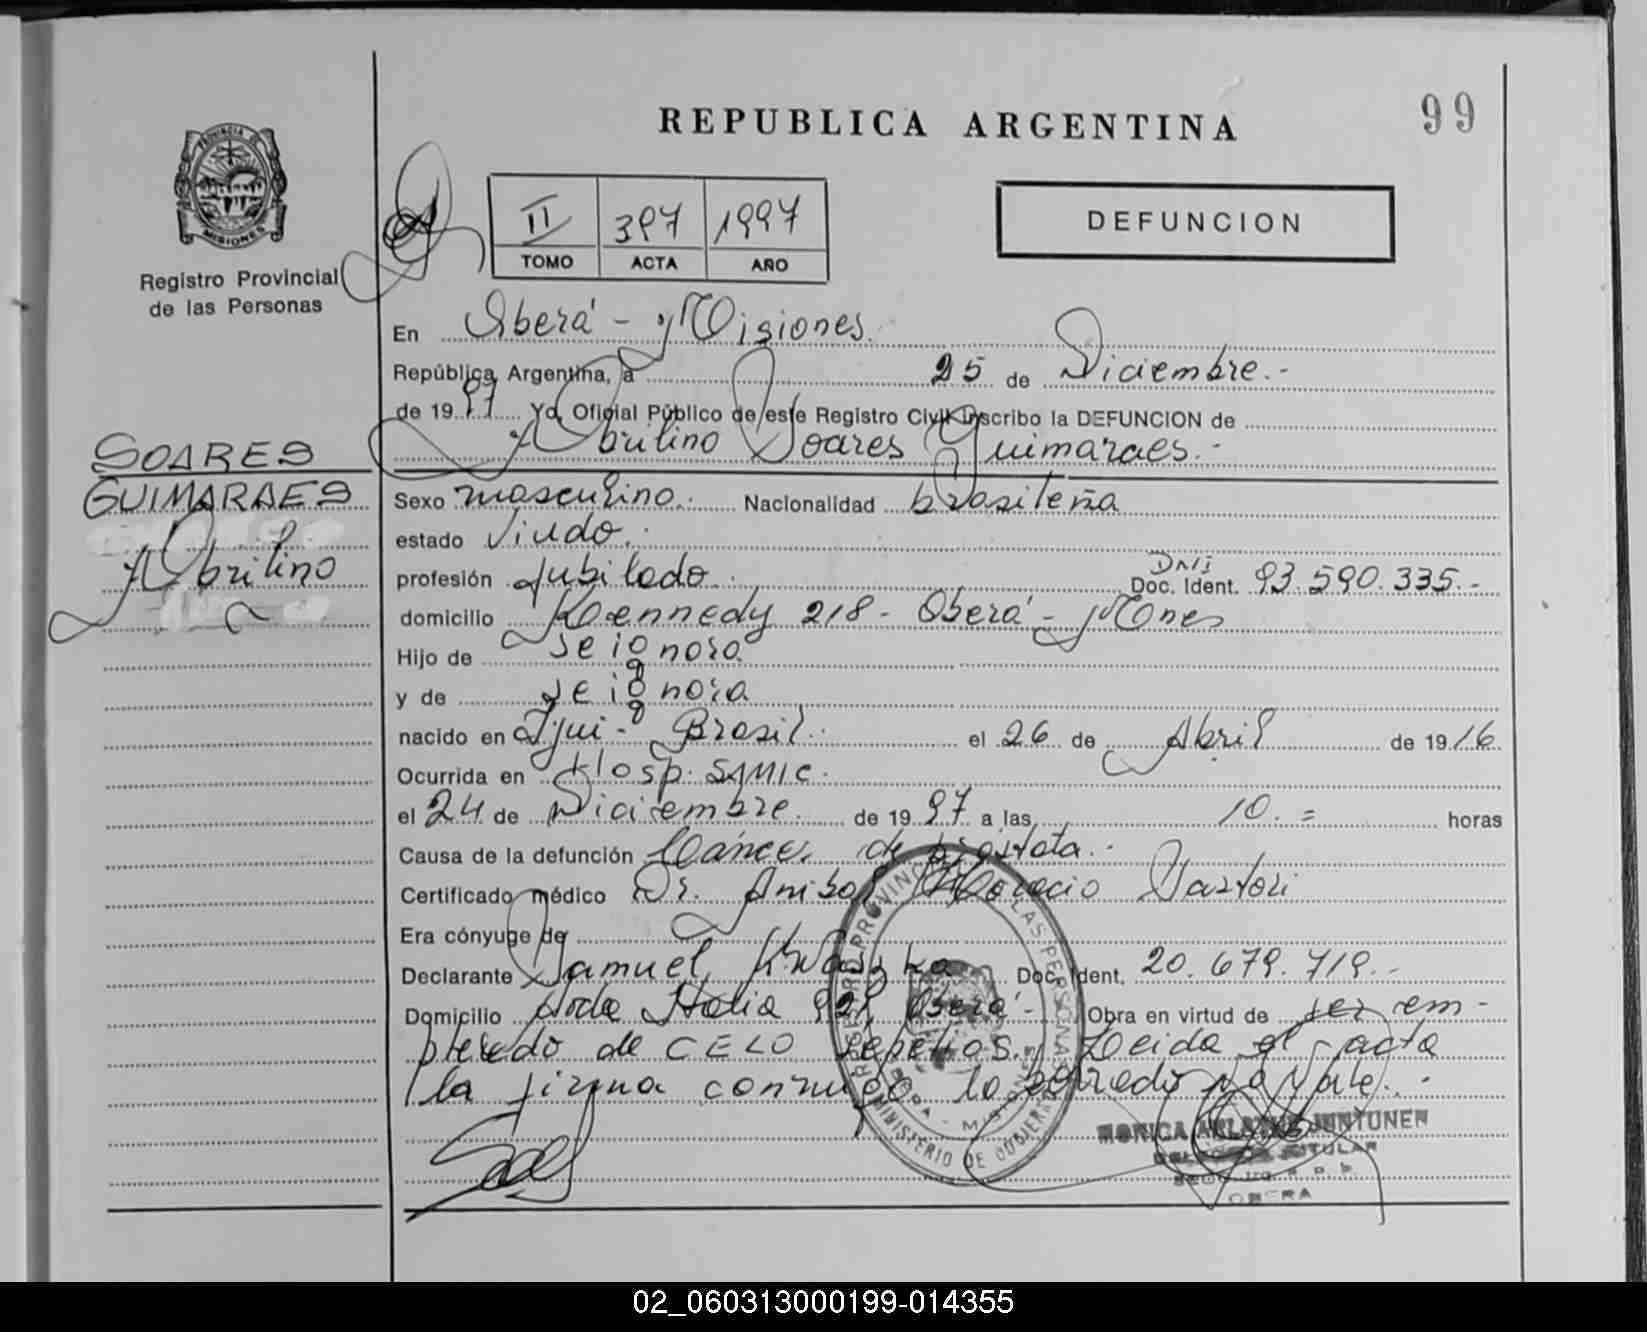 REPUBLICA ARGENTINA
99
PROVINCIA DE MISIONES
Registro Provincial
de las Personas
II 397 1997
TOMO ACTA AÑO
DEFUNCION
En Oberá - Misiones.
República Argentina, a 25 de Diciembre.-
de 1997 Yo, Oficial Público de este Registro Civil inscribo la DEFUNCION de
Abrilino Soares Guimaraes.-
SOARES
GUIMARAES
Abrilino
Sexo masculino. Nacionalidad brasileña
estado Viudo.
profesión Jubilado. DNI Doc. Ident. 93.590.335.-
domicilio Kennedy 218 - Oberá - Mnes
Hijo de se ignora
y de se ignora
nacido en Ijui - Brasil. el 26 de Abril de 1916.
Ocurrida en Hosp. SAMIC.
el 24 de Diciembre. de 1997 a las 10.= horas
Causa de la defunción Cáncer de próstata.-
Certificado médico Dr. Anibal Horacio Sartori
Era cónyuge de
Declarante Samuel Doc. Ident. 20.679.719.-
Domicilio Avda Italia Oberá - Obra en virtud de ser em-
pleado de CELO Sepelios. Leida el acta
la firma conmigo lo borrado No Vale.-
REGISTRO PROVINCIAL DE LAS PERSONAS
OBERA - MISIONES
MINISTERIO DE GOBIERNO
MONICA JUNTUNEN
TITULAR
OBERA
02_060313000199-014355